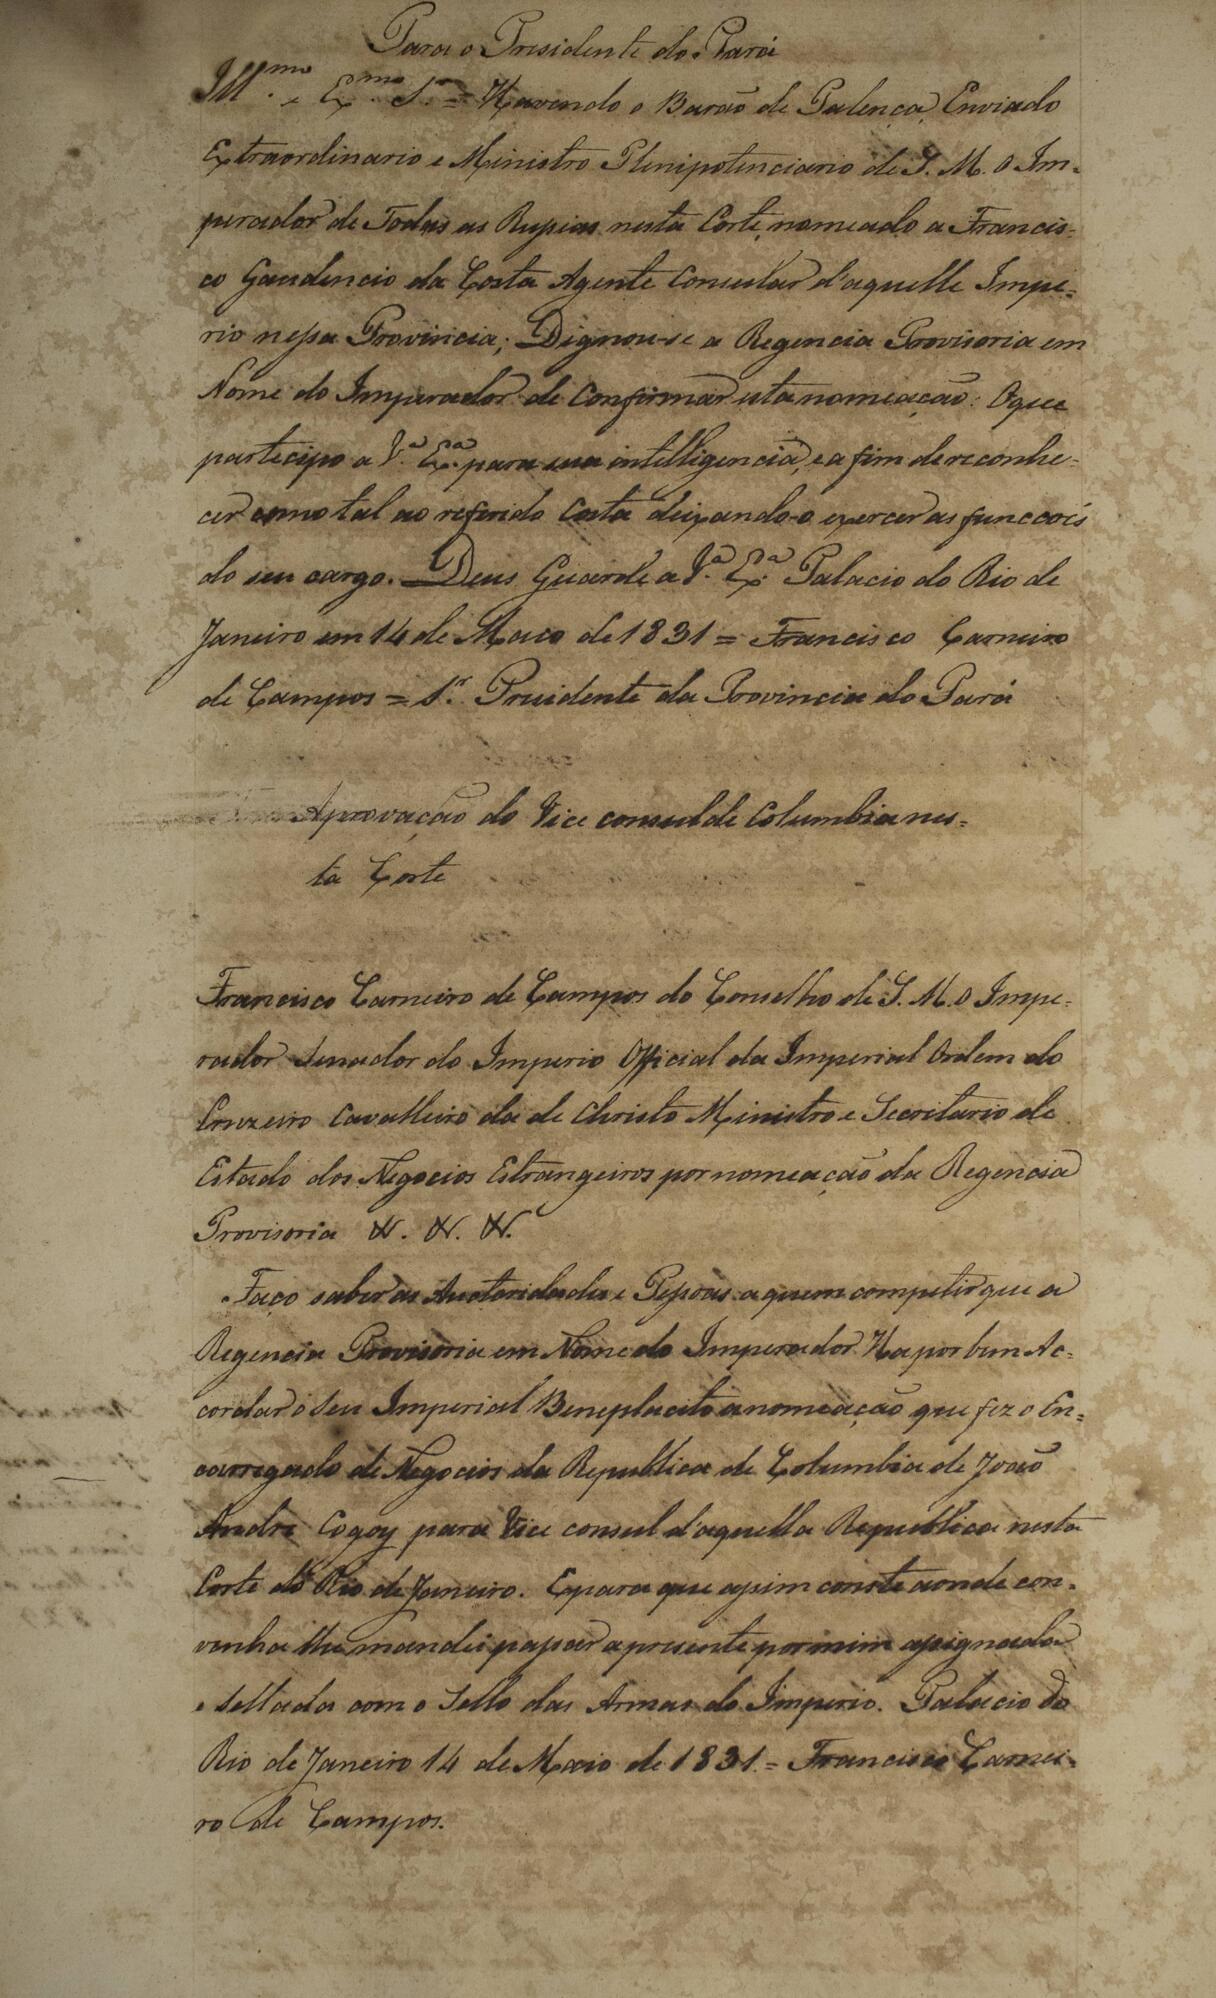 Para o Presidente do Pará
Ill.mo e Ex.mo Sr. = Havendo o Barão de Palença, Enviado
Extraordinario e Ministro Plenipotenciario de S. M. O Im-
perador de Todas as Russias nesta Corte, nomeado a Francis-
co Gaudencio da Costa Agente Consular d'aquelle Impe-
rio nessa Provincia; Dignou-se a Regencia Provisoria em
Nome do Imperador de Confirmar esta nomeação: O que
participo a V.a Ex.a para sua intelligencia, e a fim de reconhe-
cer como tal ao referido Costa deixando-o exercer as funccois
do seu cargo. Deus Guarde a V.a Ex.a Palacio do Rio de
Janeiro em 14 de Maco de 1831 = Francisco Carneiro
de Campos = Sr. Presidente da Provincia do Pará
Aprovação do Vice consul de Columbia nes-
ta Corte
Francisco Carneiro de Campos do Conselho de S. M. O Impe-
rador Senador do Imperio Official da Imperial Ordem do
Cruzeiro Cavalleiro da de Christo Ministro e Secretario de
Estado dos Negocios Estrangeiros por nomeação da Regencia
Provisoria &. &. &.
Faço saber as Auctoridades e Pessoas a quem competir que a
Regencia Provisoria em Nome do Imperador Ha por bem Ac-
cordar o Seu Imperial Beneplacito a nomeação que fez o En-
carregado de Negocios da Republica de Columbia de João
Andre Cogoy para Vice consul d'aquella Republica nesta
Corte do Rio de Janeiro. E para que assim conste aonde con-
venha lhe mandei passar a presente por mim assignada
e sellada com o Sello das Armas do Imperio. Palacio do
Rio de Janeiro 14 de Maio de 1831. = Francisco Carnei-
ro de Campos.